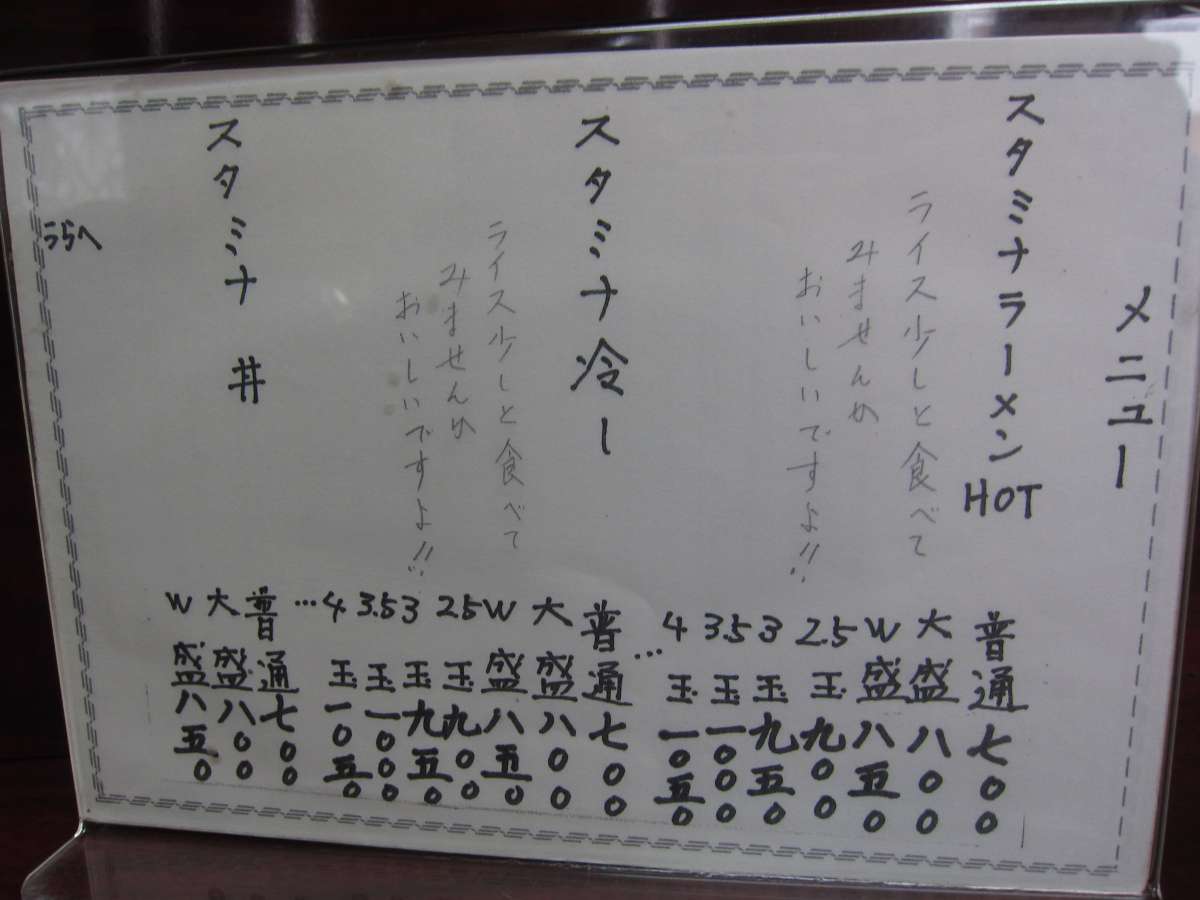 メニュー
スタミナラーメン HOT
ライス少しと食べて
みませんか
おいしいですよ!!
普通 七〇〇
大盛 八〇〇
W盛 八五〇
2.5玉 九〇〇
3玉 九五〇
3.5玉 一〇〇〇
4玉 一〇五〇
…
スタミナ冷ー
ライス少しと食べて
みませんか
おいしいですよ!!
普通 七〇〇
大盛 八〇〇
W盛 八五〇
2.5玉 九〇〇
3玉 九五〇
3.5玉 一〇〇〇
4玉 一〇五〇
…
スタミナ 丼
普通 七〇〇
大盛 八〇〇
W盛 八五〇
うらへ